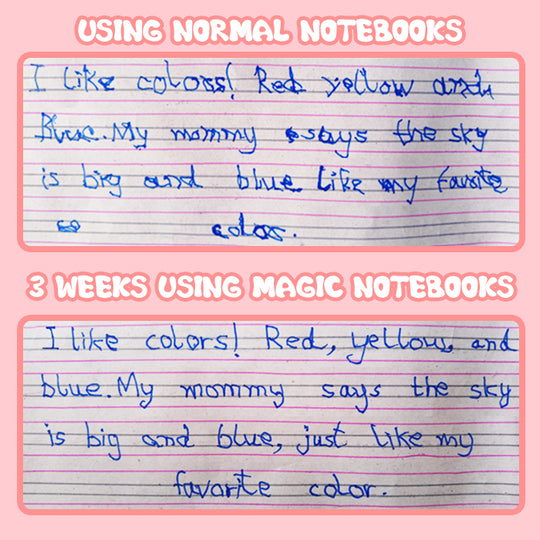 USING NORMAL NOTEBOOKS
I like colors! Red yellow and
Blue. My mommy says the sky
is big and blue like my favrite
so color.
3 WEEKS USING MAGIC NOTEBOOKS
I like colors! Red, yellow, and
blue. My mommy says the sky
is big and blue, just like my
favorite color.